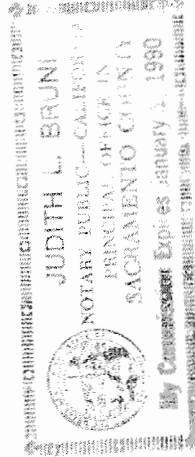 JUDITH L. BRUNI
NOTARY PUBLIC — CALIFORNIA
PRINCIPAL OFFICE IN
SACRAMENTO COUNTY
My Commission Expires January 1, 1990